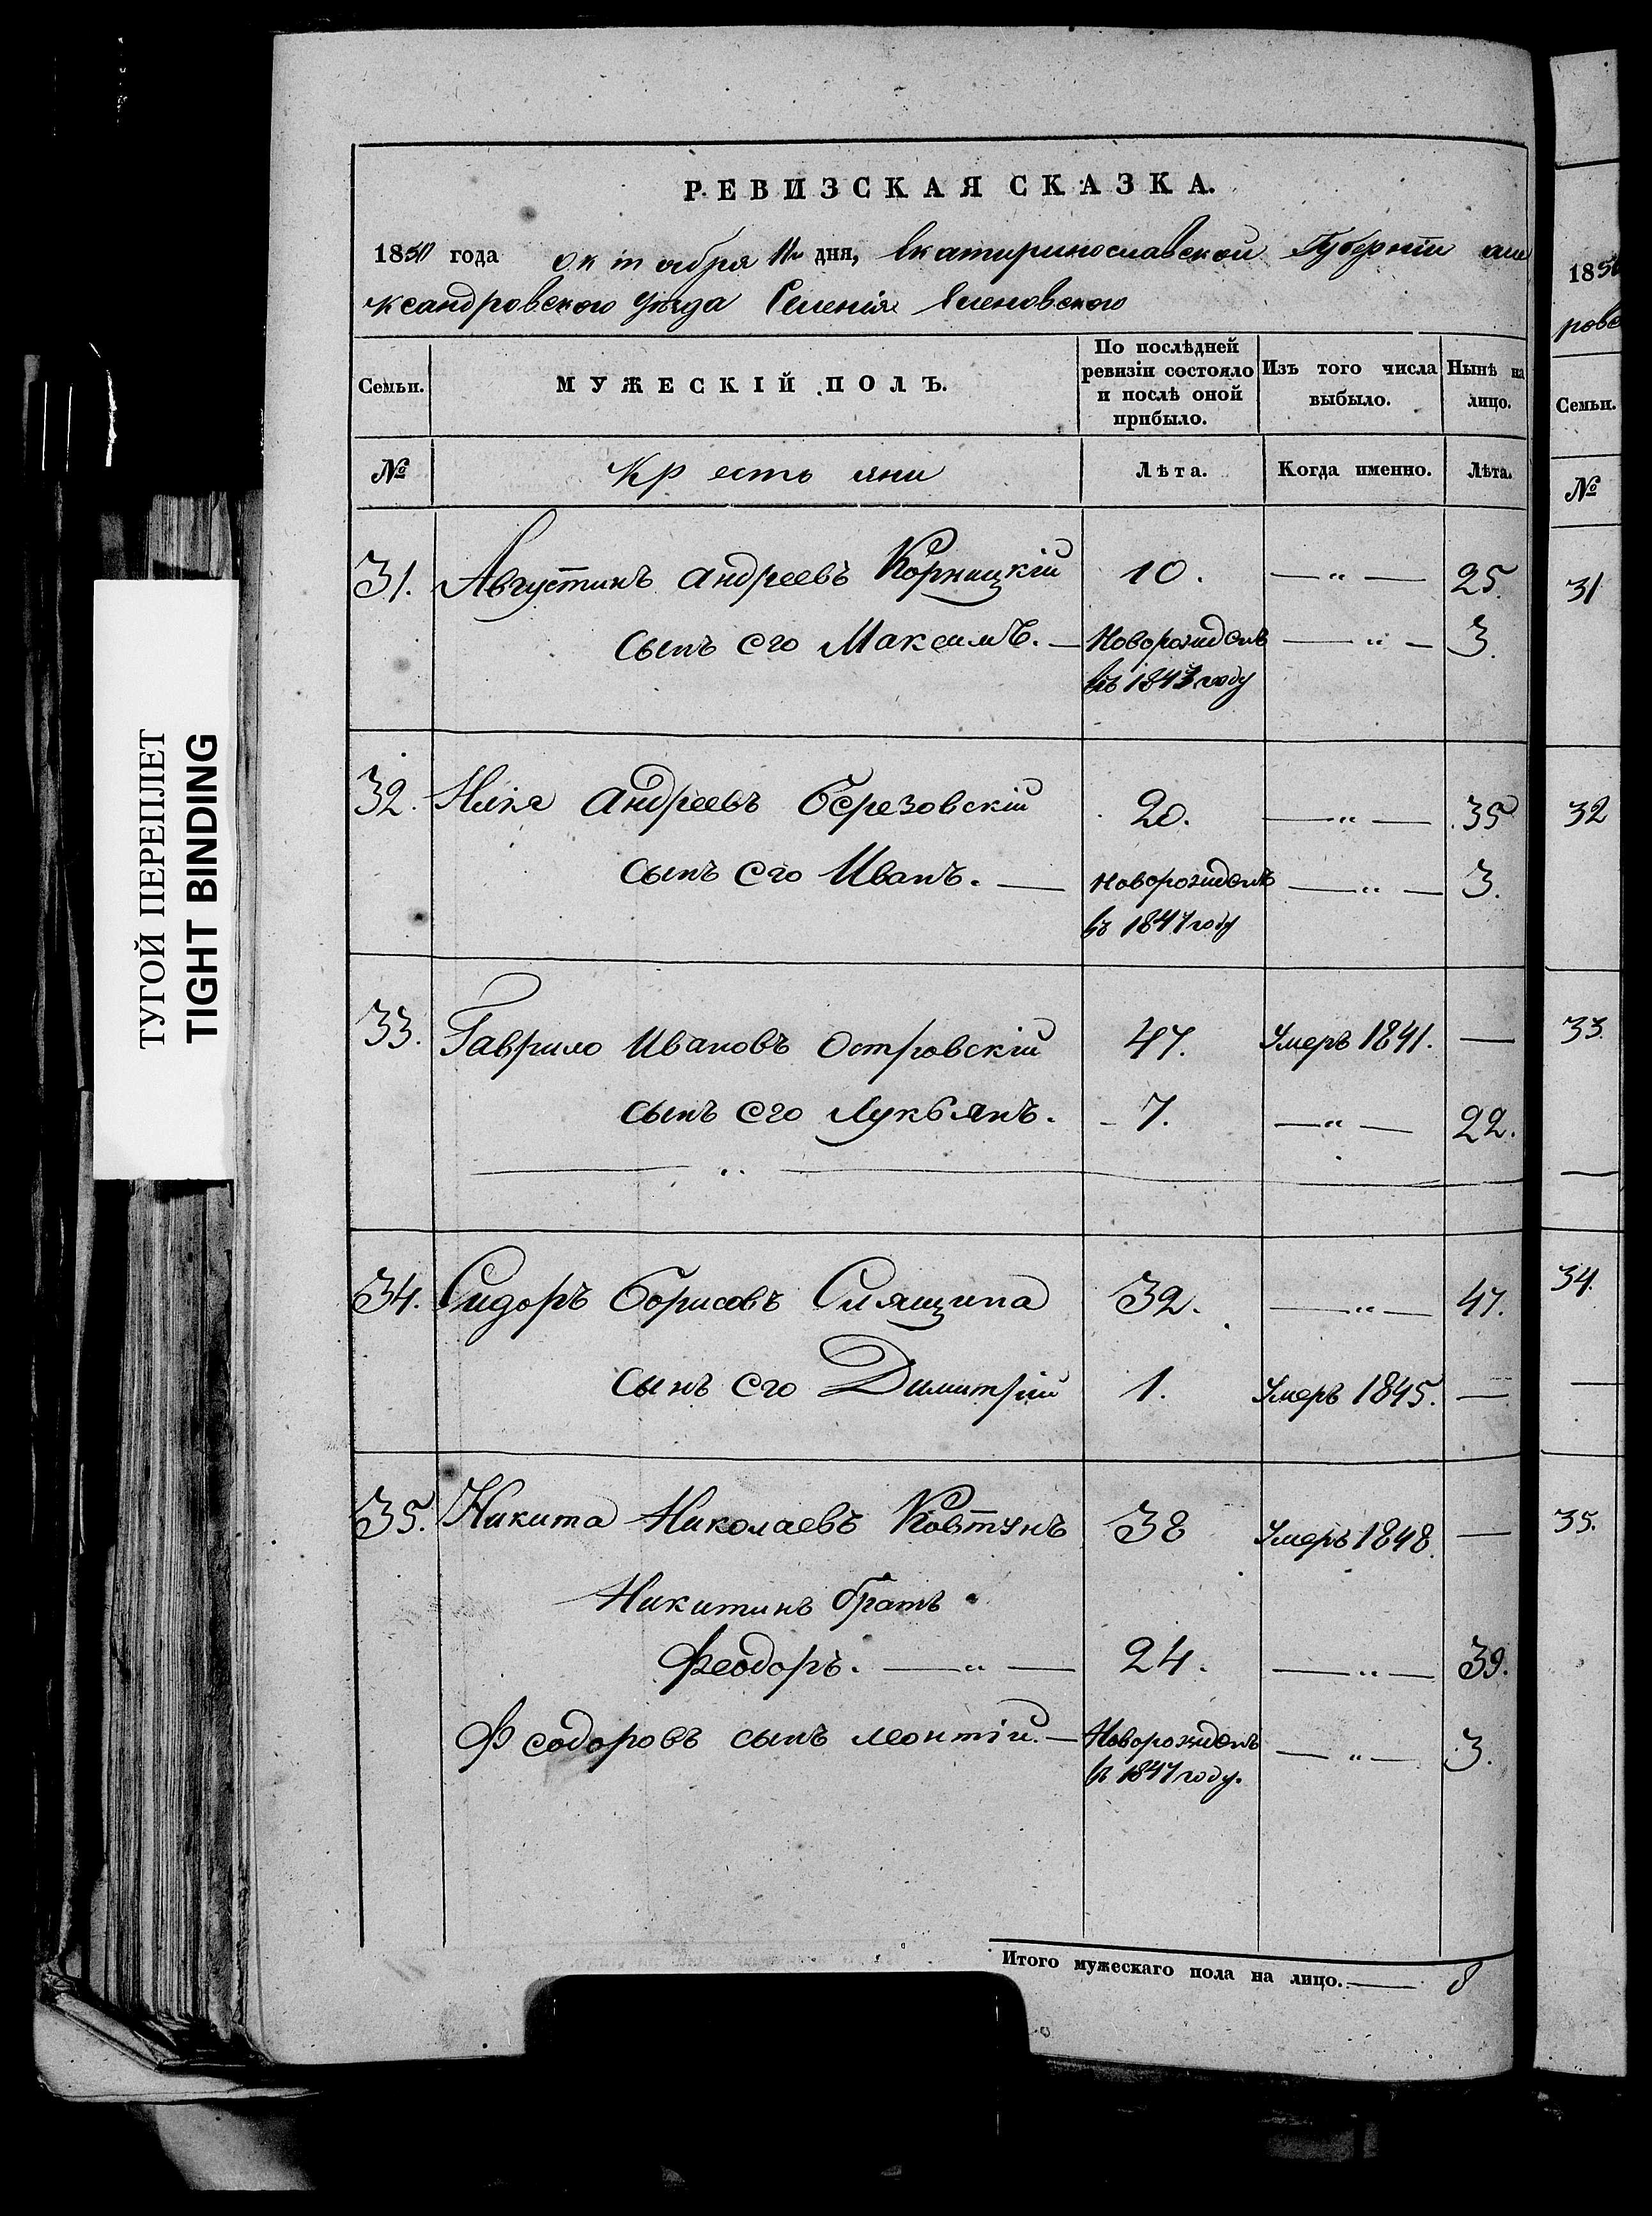 ТУГОЙ ПЕРЕПЛЕТ
TIGHT BINDING
РЕВИЗСКАЯ СКАЗКА.
1850 года октября 11 дня, Екатиринославской Губерніи але
ксандровского уѣзда Селенія Еленовского
Семьи.
МУЖЕСКІЙ ПОЛЪ.
По послѣдней ревизіи состояло и послѣ оной прибыло.
Изъ того числа выбыло.
Нынѣ на лицо.
№ Крестьяни Лѣта. Когда именно. Лѣта.
31. Августинъ андреевъ Корницкій 10. — " — 25.
сынъ его Максимъ. — Новорожденъ — " — 3.
въ 1843 году
32. андреевъ березовскій 20. — " — 35
сынъ его Иванъ. — новорожденъ — " — 3.
въ 1847 году
33. Гаврило Ивановъ Островскій 47. Умеръ 1841. —
сынъ его Лукьянъ. 7. — " — 22.
34. Сидоръ борисовъ 32. — " — 47.
сынъ его Димитрій 1. Умеръ 1845. —
35. Никита Николаевъ Ковтунъ 38 Умеръ 1848. —
Никитинъ братъ
Феодоръ. — " — 24. — " — 39.
Феодоровъ сынъ леонтій. — Новорожденъ — " — 3.
въ 1847 году.
Итого мужескаго пола на лицо. — 8
1850
ровс
Семьи.
№
31
32
33.
34.
35.